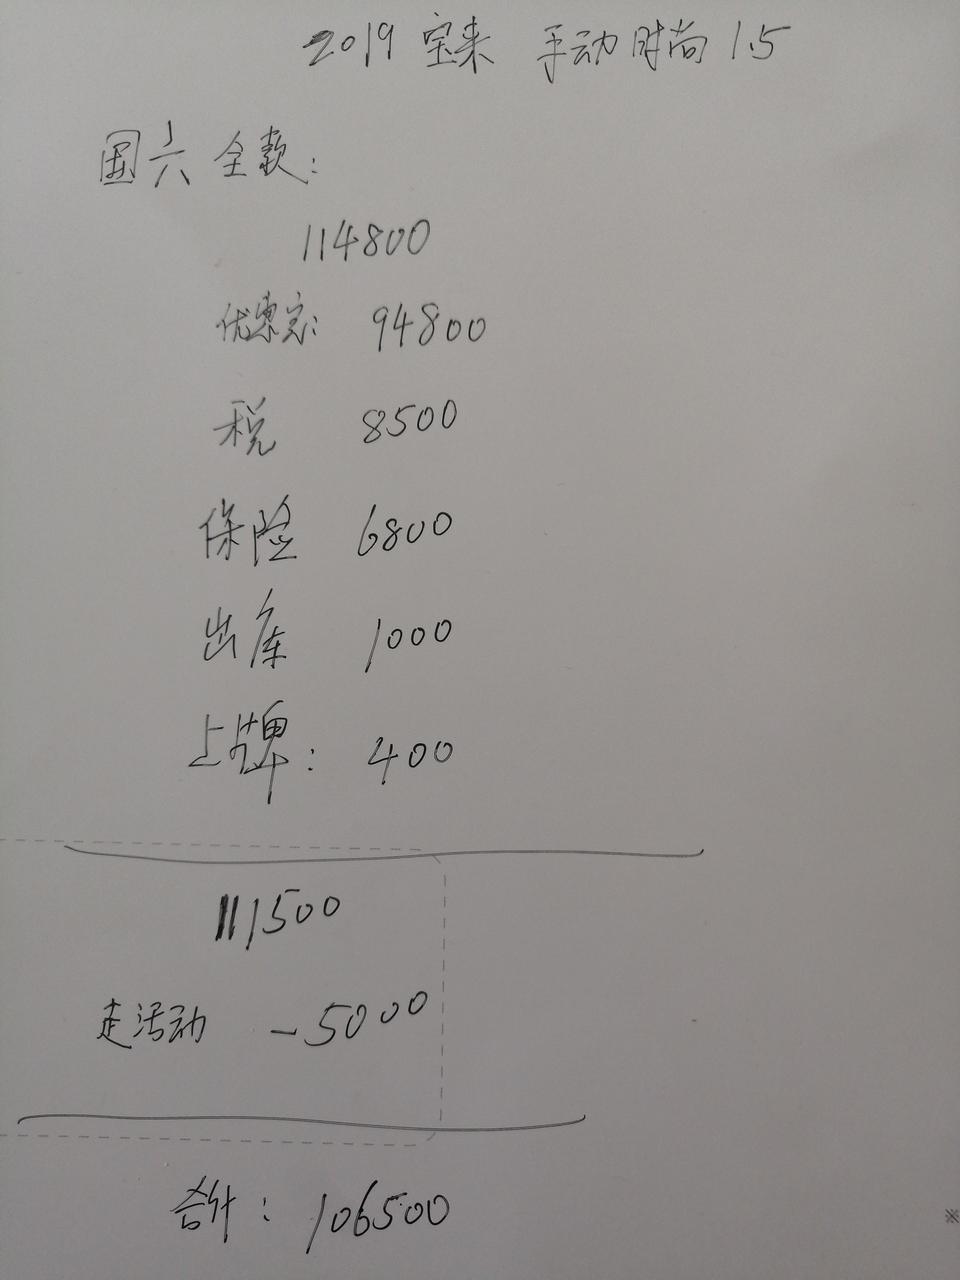 2019 宝来 手动时尚 1.5
国六 全款:
114800
优惠完: 94800
税 8500
保险 6800
出库 1000
上牌: 400
111500
走活动 -5000
合计: 106500
※